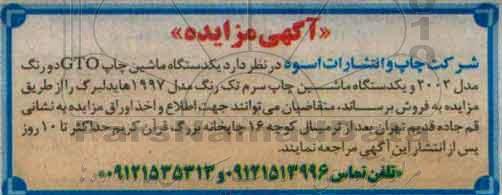 «آگهی مزایده»
شرکت چاپ و انتشارات اسوه در نظر دارد یکدستگاه ماشین چاپ GTO دو رنگ
مدل ۲۰۰۲ و یکدستگاه ماشین چاپ سرم تک رنگ مدل ۱۹۹۷ هایدلبرگ را از طریق
مزایده به فروش برساند، متقاضیان می توانند جهت اطلاع و اخذ اوراق مزایده به نشانی
قم جاده قدیم تهران بعد از ترمینال کوچه ۱۶ چاپخانه بزرگ قرآن کریم حداکثر تا ۱۰ روز
پس از انتشار این آگهی مراجعه نمایند.
«تلفن تماس ۰۹۱۲۱۵۱۳۹۹۶ و ۰۹۱۲۱۵۳۵۳۱۳»